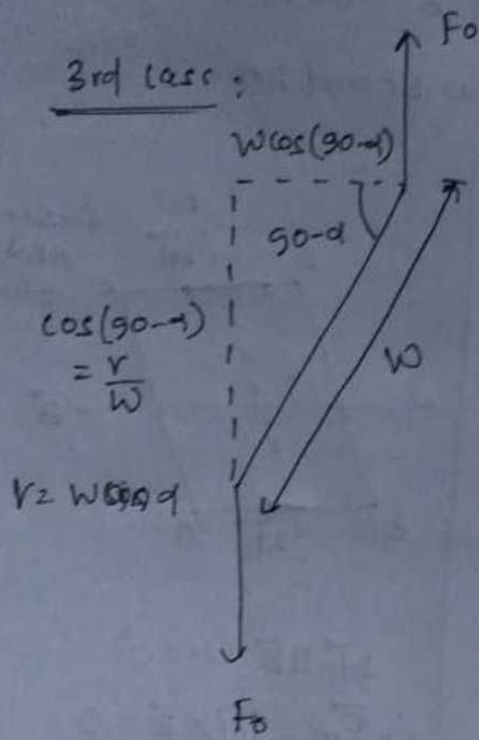 Fo
3rd case :
W cos(90-α)
90-α
cos(90-α)
= r/W
W
r = W α
Fo